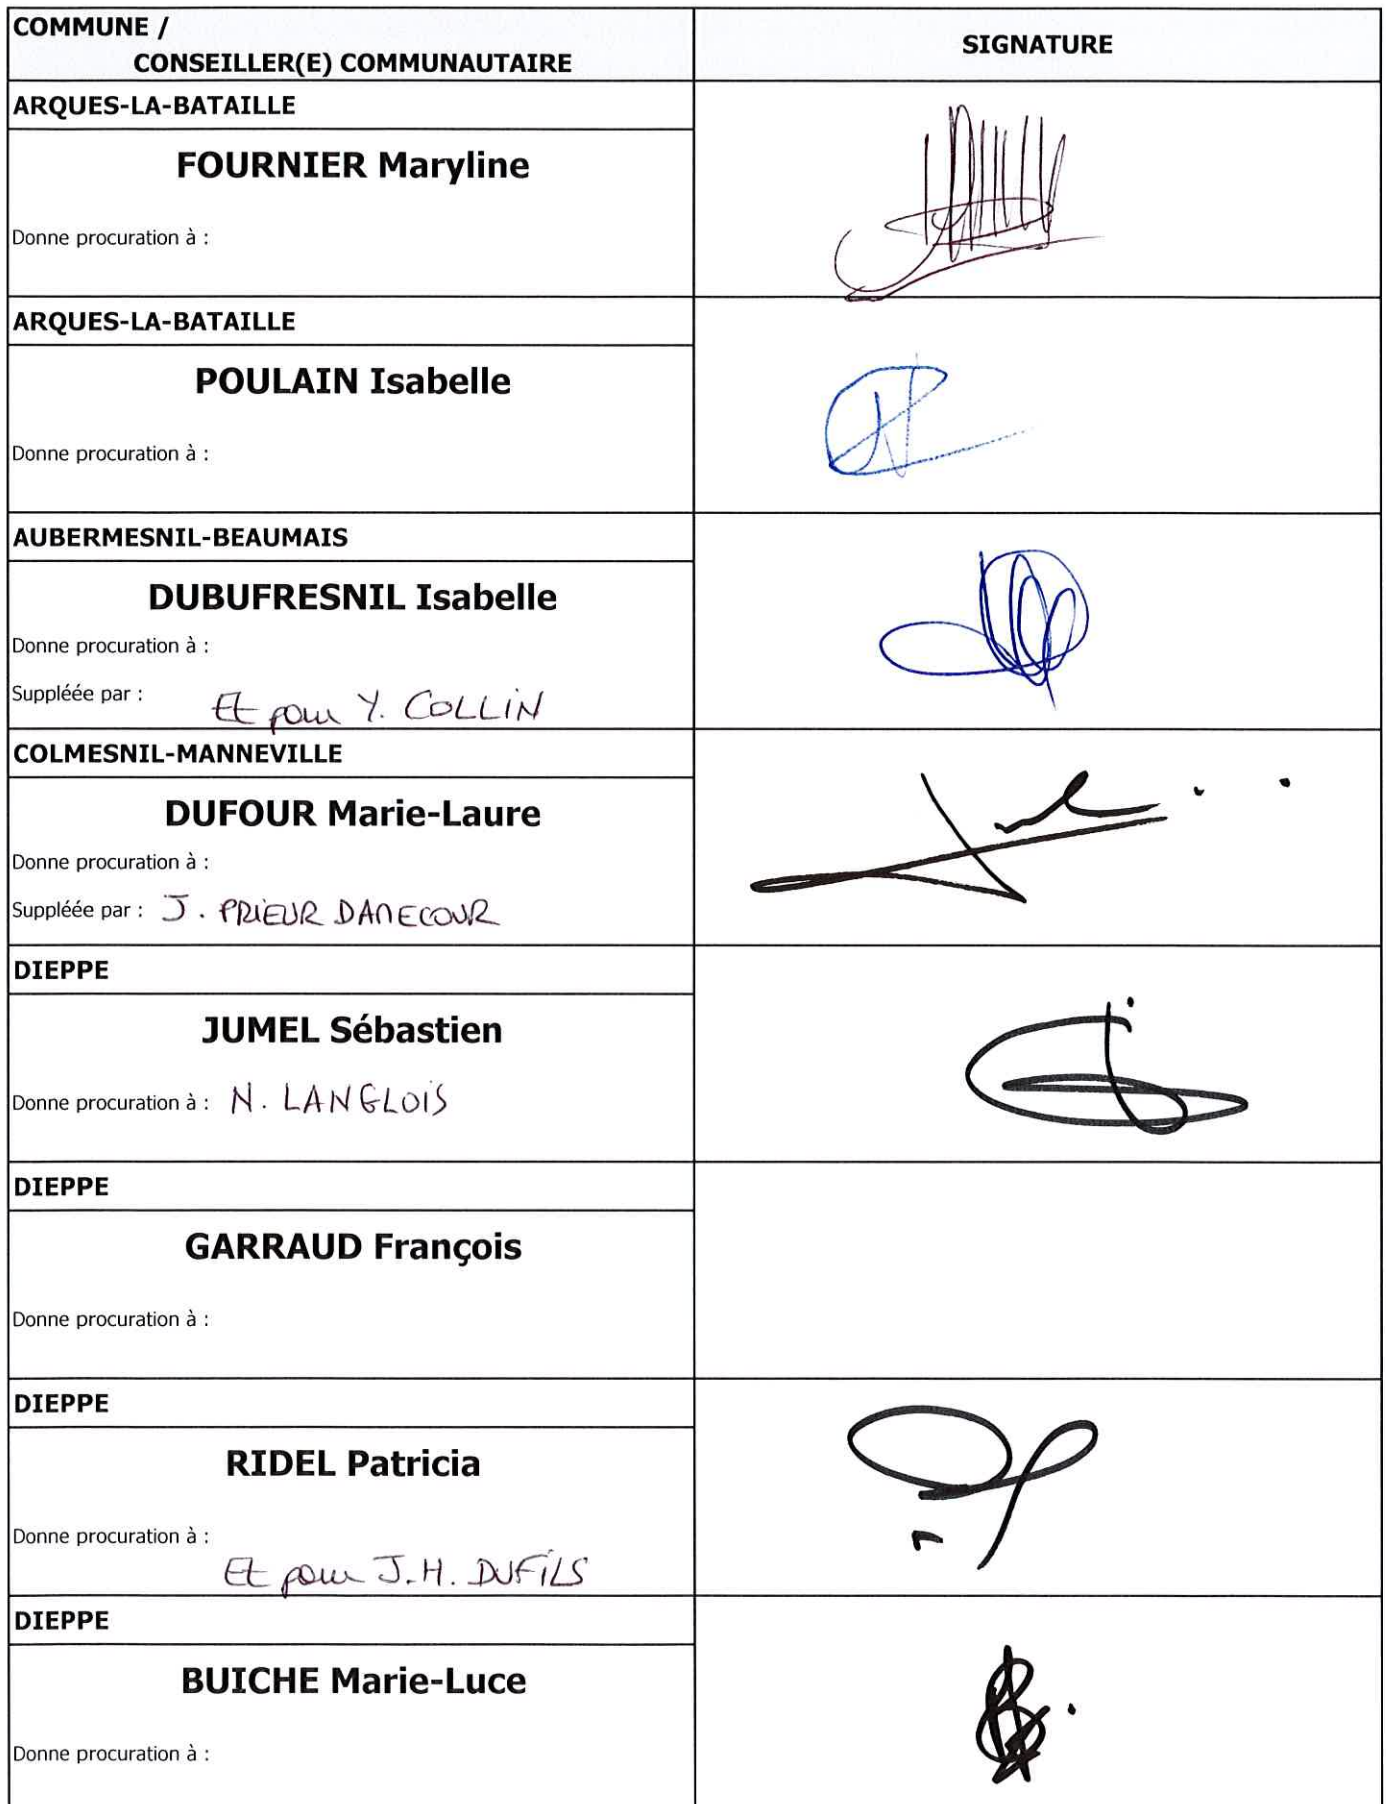 COMMUNE /
CONSEILLER(E) COMMUNAUTAIRE
SIGNATURE
ARQUES-LA-BATAILLE
FOURNIER Maryline
Donne procuration à :
ARQUES-LA-BATAILLE
POULAIN Isabelle
Donne procuration à :
AUBERMESNIL-BEAUMAIS
DUBUFRESNIL Isabelle
Donne procuration à :
Suppléée par : Et pour Y. COLLIN
COLMESNIL-MANNEVILLE
DUFOUR Marie-Laure
Donne procuration à :
Suppléée par : J. PRIEUR DANECOUR
DIEPPE
JUMEL Sébastien
Donne procuration à : N. LANGLOIS
DIEPPE
GARRAUD François
Donne procuration à :
DIEPPE
RIDEL Patricia
Donne procuration à :
Et pour J.H. DUFILS
DIEPPE
BUICHE Marie-Luce
Donne procuration à :